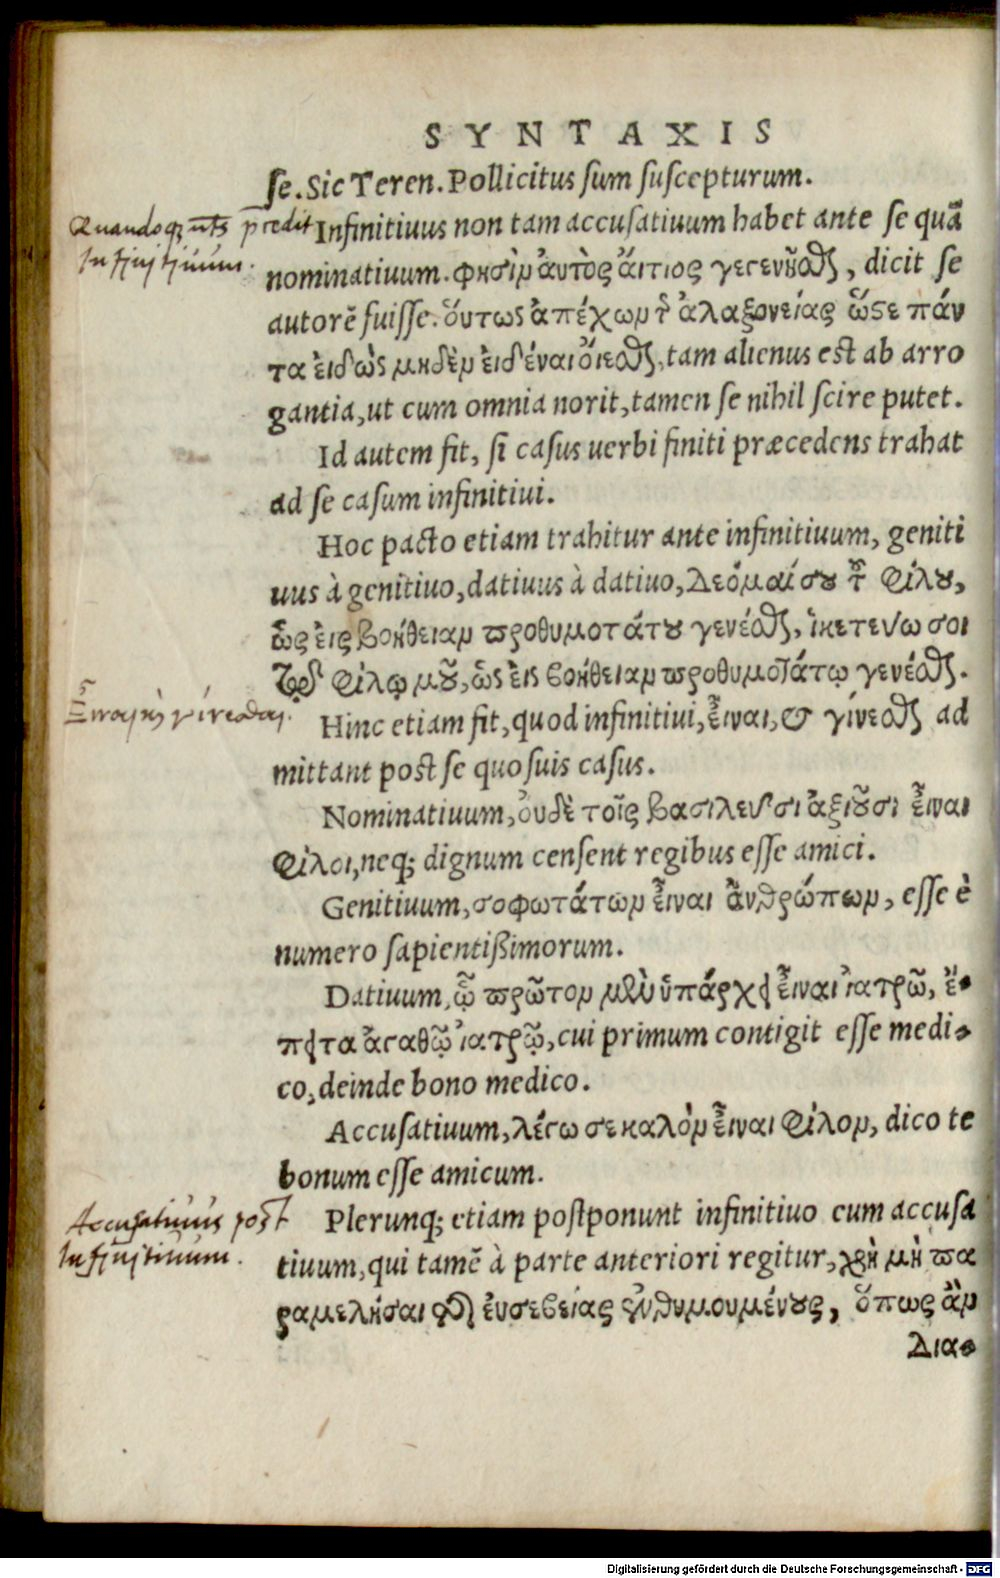 SYNTAXIS
se. Sic Teren. Pollicitus sum suscepturum.
Infinitiuus non tam accusatiuum habet ante se quā
nominatiuum. φησὶν ἀυτὸς ἄιτιος γεγενῆσθαι, dicit se
autorē fuisse. ὅυτως ἀπέχων τῆς ἀλαζονείας ὥστε πάν
τα ἐιδὼς μηδὲν ἐιδέναι ὄιεσθαι, tam alienus est ab arro
gantia, ut cum omnia norit, tamen se nihil scire putet.
Id autem fit, si casus uerbi finiti præcedens trahat
ad se casum infinitiui.
Hoc pacto etiam trahitur ante infinitiuum, geniti
uus à genitiuo, datiuus à datiuo, δεόμαί σου τοῦ φίλου,
ὡς ἐις βοήθειαν προθυμοτάτου γενέσθαι, ἱκετεύω σοι
τῷ φίλῳ μοῦ, ὡς ἐις βοήθειαν προθυμοτάτῳ γενέσθαι.
Hinc etiam fit, quod infinitiui, ἶειναι, & γίνεσθαι ad
mittant post se quosuis casus.
Nominatiuum, ὀυδὲ τοῖς βασιλεῦσι ἀξιοῦσι εἶναι
φίλοι, neq; dignum censent regibus esse amici.
Genitiuum, σοφωτάτων εἶναι ἀνθρώπων, esse è
numero sapientißimorum.
Datiuum, ᾧ πρῶτον μὲν ὑπάρχει εἶναι ἰατρῶ, ἔ-
πειτα ἀγαθῷ ἰατρῷ, cui primum contigit esse medi-
co, deinde bono medico.
Accusatiuum, λέγω σε καλὸν εἶναι φίλον, dico te
bonum esse amicum.
Plerunq; etiam postponunt infinitiuo cum accusa
tiuum, qui tamē à parte anteriori regitur, χρὴ μὴ πα
ραμελῆσαι τῆς ἐυσεβείας ἐνθυμουμένους, ὅπως ἂν
Δια-
Quandoq; predit
Infinitiuum.
Ειναι καὶ γίνεσθαι.
Accusatiuus post
Infinitiuum.
Digitalisierung gefördert durch die Deutsche Forschungsgemeinschaft - DFG